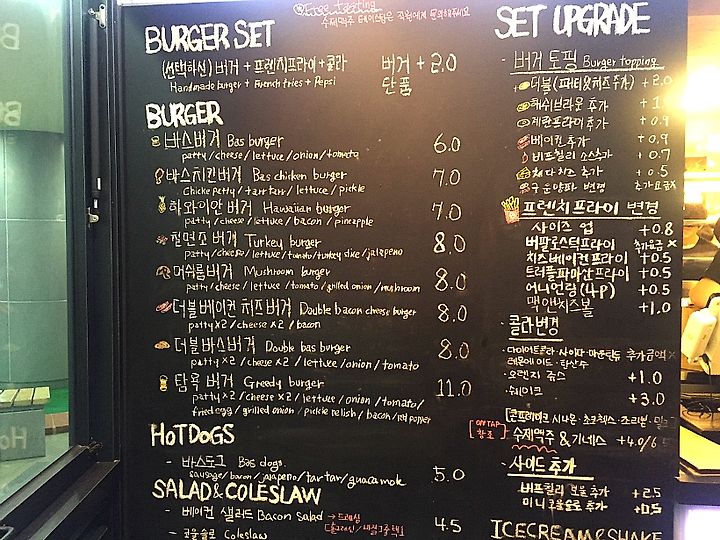 Free tasting
수제맥주 테이스팅은 직원에게 문의해주세요
BURGER SET
(선택하신) 버거 + 프렌치프라이 + 콜라 버거 + 2.0
Handmade burger + French fries + Pepsi 단품
BURGER
바스버거 Bas burger 6.0
patty/cheese/lettuce/onion/tomato
바스치킨버거 Bas chicken burger 7.0
Chicke patty/tartar/lettuce/pickle
하와이안 버거 Hawaiian burger 7.0
patty/cheese/lettuce/bacon/pineapple
칠면조 버거 Turkey burger 8.0
patty/cheese/lettuce/tomato/turkey slice/jalapeno
머쉬룸버거 Mushroom burger 8.0
patty/cheese/lettuce/tomato/grilled onion/mushroom
더블베이컨 치즈버거 Double bacon cheese burger 8.0
patty×2/cheese×2/bacon
더블바스버거 Double bas burger 8.0
patty×2/cheese×2/lettuce/onion/tomato
탐욕 버거 Greedy burger 11.0
patty×2/cheese×2/lettuce/onion/tomato/
fried egg/grilled onion/pickle relish/bacon/red pepper
HOTDOGS
- 바스도그 Bas dogs 5.0
sausage/bacon/jalapeno/tartar/guacamole
SALAD&COLESLAW
- 베이컨 샐러드 Bacon Salad → 드레싱 4.5
- 코울슬로 Coleslaw
SET UPGRADE
· 버거 토핑 Burger topping
더블(패티&치즈추가) + 2.0
해쉬브라운 추가
계란프라이추가 + 0.9
베이컨추가 + 0.9
비프칠리 소스추가 + 0.7
체다치즈 추가 + 0.5
구운양파 변경 추가요금X
프렌치프라이 변경
사이즈 업 +0.8
버팔로스틱프라이 추가요금 X
치즈베이컨프라이 +0.5
트러플파마산프라이 +0.5
어니언링(4P) +0.5
맥앤치즈볼 +1.0
· 콜라변경
· 다이어트콜라·사이다·마운틴듀 추가금액X
레몬에이드·탄산수
· 오렌지 쥬스 +1.0
· 쉐이크 +3.0
ON TAP 참조
수제맥주 & 기네스 +4.0/6.5
· 사이드 추가
비프칠리 보울 추가 +2.5
미니 코울슬로 추가 +0.5
ICECREAM&SHAKE